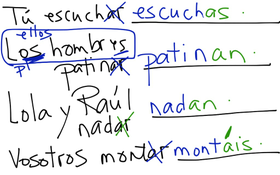 Tú escuchar escuchas.
ellos
Los hombres
pl patinar patinan.
Lola y Raúl nadan.
nadar
Vosotros montar montáis.